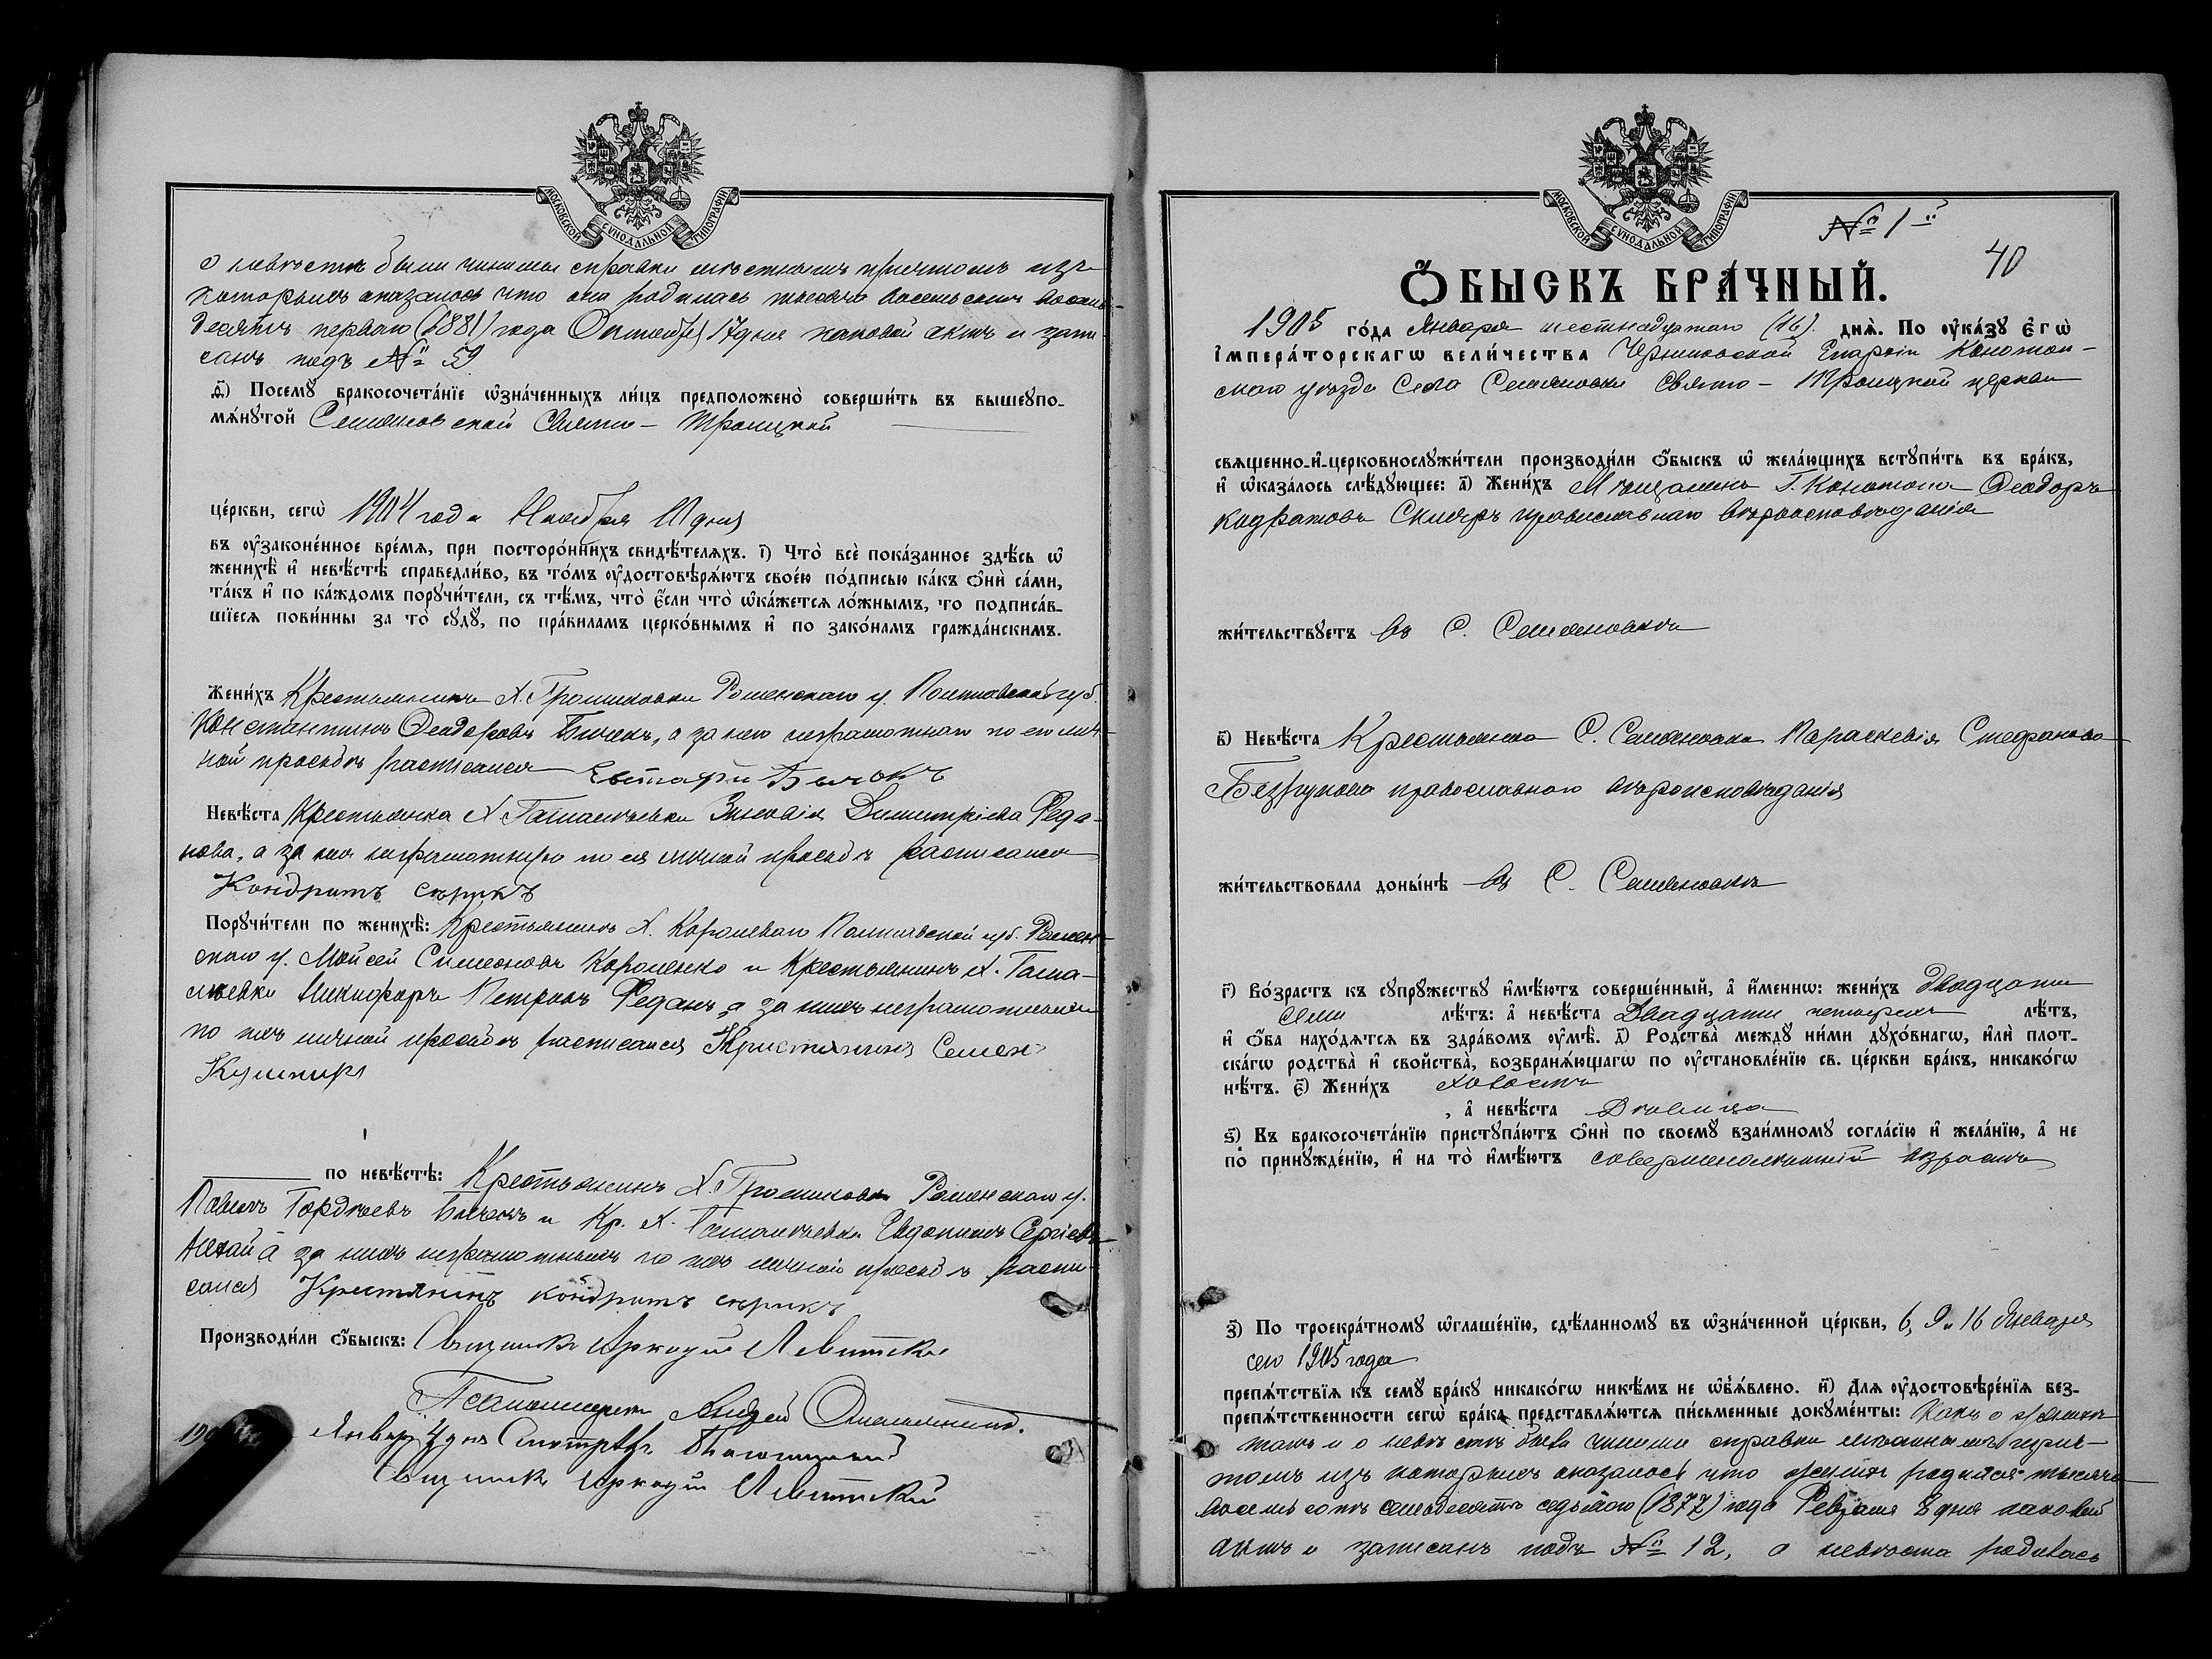 МОСКОВСКОЙ СѴНОДАЛЬНОЙ ТИПОГРАФІИ
о невѣстѣ были чинимы справки мѣстнымъ причтомъ изъ
которыхъ оказалось что она родилась тысяча восемьсотъ восемь-
десятъ перваго (1881) года Октября 17 дня каковой актъ и запи
санъ подъ № 59
д҃) Посемꙋ̀ бракосочета́нїе ѡ҆зна́ченныхъ ли́цъ предположено̀ соверши́ть въ вышеꙋпо-
мѧ́нꙋтой Семяновской Свято – Троицкой
це́ркви, сегѡ̀ 1904 года Ноября 10 дня
въ ᲂу҆законе́нное вре́мѧ, при посторо́ннихъ свидѣ́телѧхъ. і҃) Что̀ всѐ пока́занное здѣ́сь ѡ҆
женихѣ̀ и҆ невѣ́стѣ справедли́во, въ то́мъ ᲂу҆достовѣрѧ́ютъ свое́ю по́дписью ка́къ ѻ҆нѝ са́ми,
та́къ и҆ по ка́ждомъ порꙋчи́тели, съ тѣ́мъ, что̀ є҆́сли что̀ ѡ҆ка́жетсѧ ло́жнымъ, то подписа́в-
шїесѧ пови́нны за то̀ сꙋдꙋ̀, по пра́виламъ церко́внымъ и҆ по зако́намъ гражда́нскимъ.
Жени́хъ Крестьянинъ Х. Громиковки Роменскаго у. Полтавской губ.
Константинъ Феодоровъ Бичекъ, а за него неграмотнаго по его лич-
ной просьбѣ расписался
Невѣ́ста Крестьянка Х Ташалѣевки Зиновія Димитріева Феда-
нова, а за нея неграмотную по ея личной просьбѣ расписался
Кондратъ Сѣрикъ
Порꙋчи́тели по женихѣ̀: Крестьянинъ Х. Королеваго Полтавской губ. Ромен-
скаго у. Мойсей Симеоновъ Короленко и Крестьянинъ Х. Таша-
лѣевки Никифоръ Петровъ Феданъ, а за нихъ неграмотныхъ
по ихъ личной просьбѣ расписался Кристянинъ Семен
Кушниръ
по невѣ́стѣ: Крестьянинъ Х. Громиковки Роменскаго у.
Павелъ Гордѣевъ Бичекъ и Кр. Х. Ташалѣевки Евдокимъ Сергѣевъ
а за нихъ неграмотныхъ по ихъ личной просьбѣ распи
сался Крестянинъ Кондратъ Сѣрикъ
Производи́ли ѻ҆́быскъ: Священникъ Аркадій Левитскій
Псаломщикъ Андрей
Января 4 дня
Священникъ Аркадій Левитскій
МОСКОВСКОЙ СѴНОДАЛЬНОЙ ТИПОГРАФІИ
№ 1й
40
Ѻ҆́БЫСКЪ БРА́ЧНЫЙ.
1905 го́да Января шестнадцатаго (16). днѧ̀. По ᲂу҆ка́зꙋ Є҆гѡ̀
І҆мпера́торскагѡ вели́чества Черниговской Епархіи Конотоп-
скаго уѣзда Села Семяновки Свято – Троицкой церкви
свѧщенно-и҆-церковнослꙋжи́тели производи́ли ѻ҆́быскъ ѡ҆ жела́ющихъ встꙋпи́ть въ бра́къ,
и҆ ѡ҆каза́лось слѣ́дꙋющее: а҃) Жени́хъ Мѣщанинъ Г. Конотопа Феодоръ
Кодратовъ Скляръ православнаго вѣроисповѣданія
жи́тельствꙋетъ въ С. Семяновкѣ
в҃) Невѣ́ста Крестьянка С. Семяновки Параскевія Стефанова
Безрукова православнаго вѣроисповѣданія
жи́тельствовала доны́нѣ въ С. Семяновкѣ
г҃) Во́зрастъ къ сꙋпрꙋ́жествꙋ и҆мѣ́ютъ соверше́нный, а҆ и҆́меннѡ: жени́хъ Двадцати
семи лѣ́тъ: а҆ невѣ́ста Двадцати четырехъ лѣ́тъ,
и҆ ѻ҆́ба нахо́дѧтсѧ въ здра́вомъ ᲂу҆мѣ̀. д҃) Родства̀ междꙋ̀ ни́ми дꙋхо́внагѡ, и҆лѝ плот-
ска́гѡ родства̀ и҆ свойства̀, возбранѧ́ющагѡ по ᲂу҆становле́нїю св. це́ркви бра́къ, никако́гѡ
нѣ́тъ. є҃) Жени́хъ холостъ
, а҆ невѣ́ста Дѣвица
ѕ҃) Къ бракосочета́нїю пристꙋпа́ютъ ѻ҆нѝ по своемꙋ̀ взаи́мномꙋ согла́сїю и҆ жела́нїю, а҆ не
по̀ принꙋжде́нїю, и҆ на то̀ и҆мѣ́ютъ совершенолѣтній возрастъ
з҃) По троекра́тномꙋ ѡ҆глаше́нїю, сдѣ́ланномꙋ въ ѡ҆зна́ченной це́ркви, 6, 9 и 16 Января
сего 1905 года
препѧ́тствїѧ къ семꙋ̀ бра́кꙋ никако́гѡ никѣ́мъ не ѡ҆б̾ѧ́влено. и҃) Длѧ ᲂу҆достовѣре́нїѧ без-
препѧ́тственности сегѡ̀ бра́ка представлѧ́ютсѧ пи́сьменные докꙋме́нты: Какъ о женихѣ
такъ и о невѣстѣ были чинимы справки мѣстнымъ прич-
томъ изъ которыхъ оказалось что женихъ родился тысяча
восемьсотъ семьдесятъ седьмого (1877) года Февраля 8 дня каковой
актъ и записанъ подъ № 12, а невѣста родилась